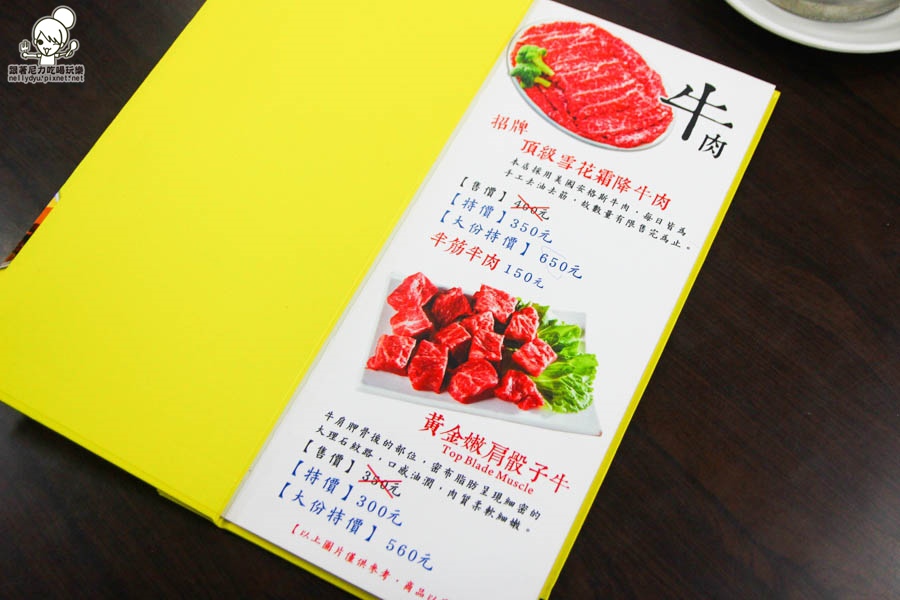 跟著尼力吃喝玩樂
nellydyu.pixnet.net
牛肉
招牌
頂級雪花霜降牛肉
本店採用美國安格斯牛肉，每日皆為
手工去油去筋，故數量有限售完為止。
【售價】400元
【特價】350元
【大份特價】650元
半筋牛肉 150元
黃金嫩肩骰子牛
Top Blade Muscle
牛肩胛骨後的部位，密布脂肪呈現細密的
大理石紋路，口感油潤，肉質柔軟細嫩。
【售價】350元
【特價】300元
【大份特價】560元
【以上圖片僅供參考，商品以